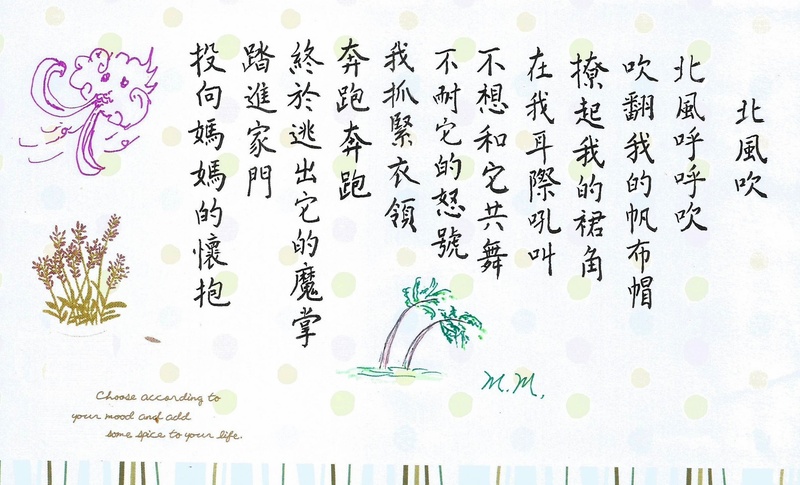 北風吹
北風呼呼吹
吹翻我的帆布帽
撩起我的裙角
在我耳際吼叫
不想和它共舞
不耐它的怒號
我抓緊衣領
奔跑奔跑
終於逃出它的魔掌
踏進家門
投向媽媽的懷抱
M.M.
Choose according to
your mood and add
some spice to your life.